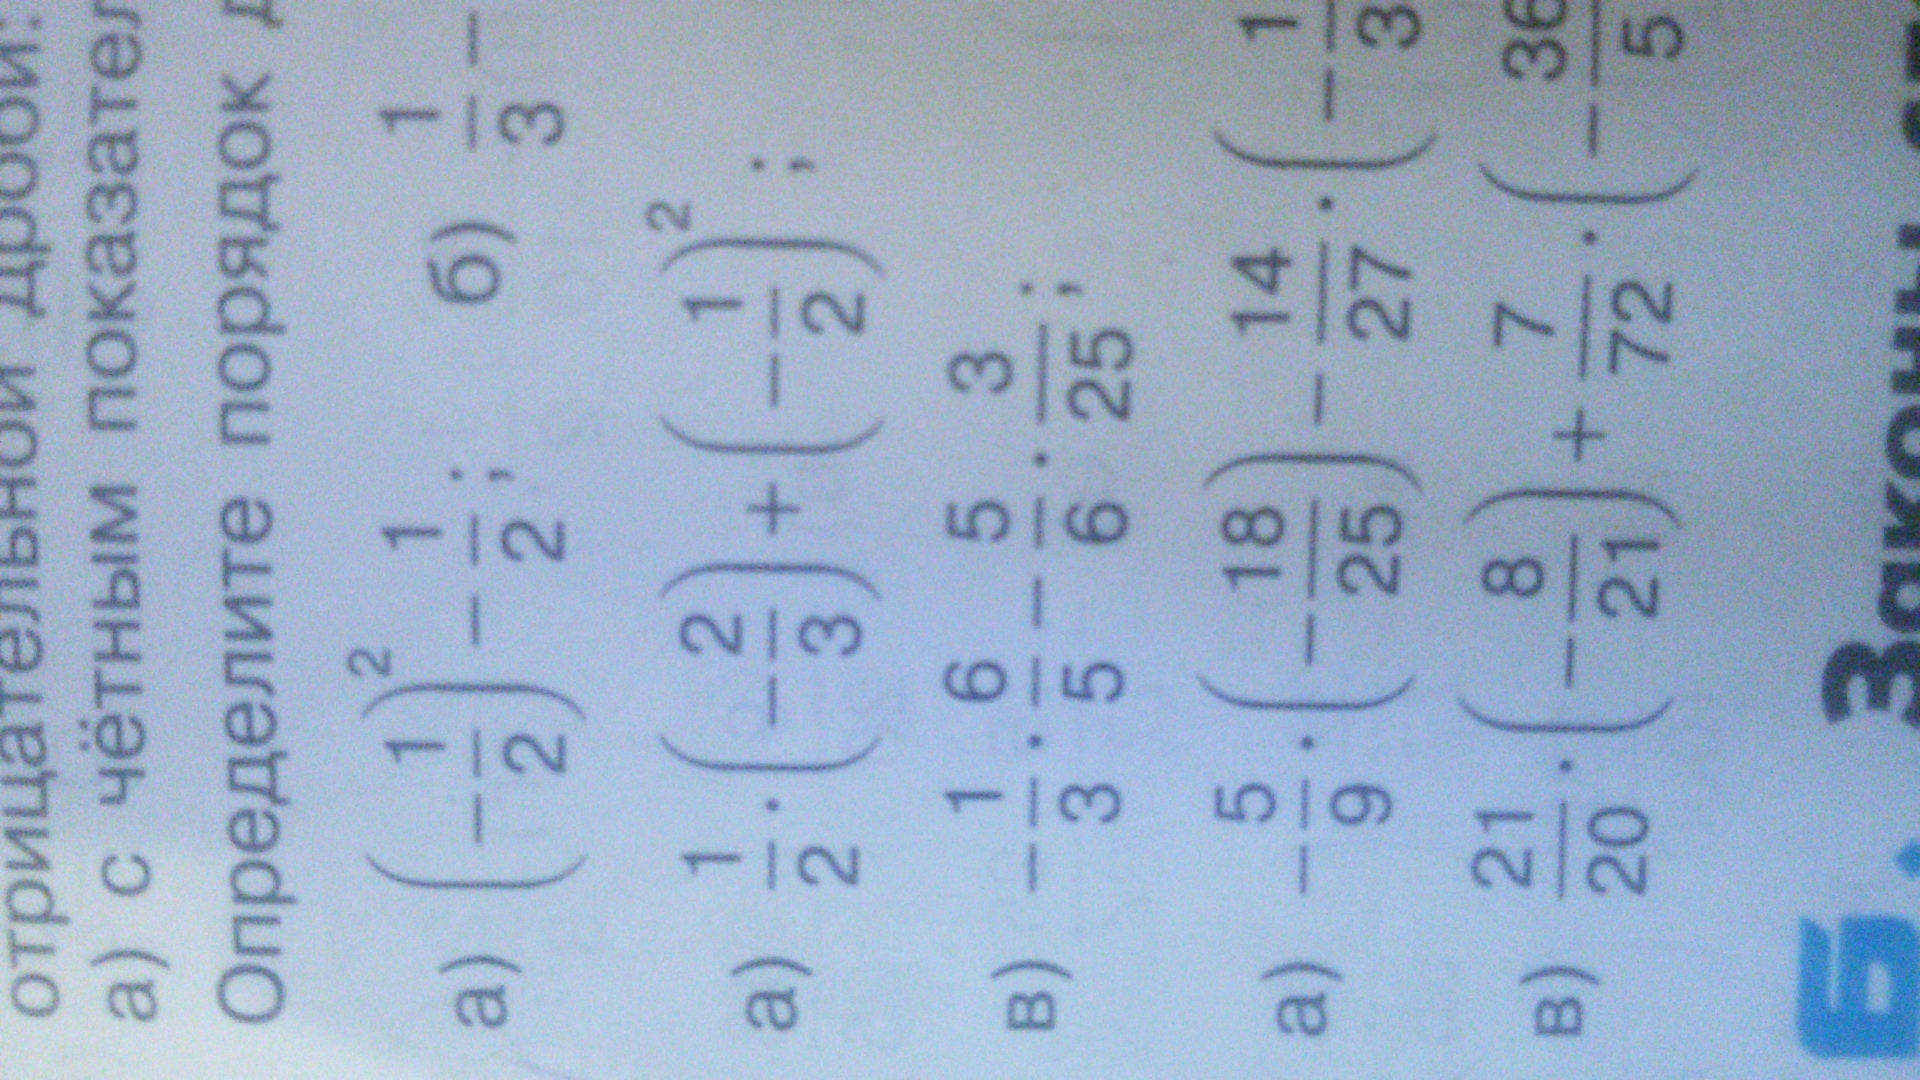 отрицательной дроби:
а) с чётным показател
Определите порядок д
а) (-1/2)² - 1/2; б) 1/3 -
а) 1/2 · (-2/3) + (-1/2)²;
в) -1/3 · 6/5 - 5/6 · 3/25;
а) -5/9 · (-18/25) - 14/27 · (-1/3
в) 21/20 · (-8/21) + 7/72 · (-36/5
Законы